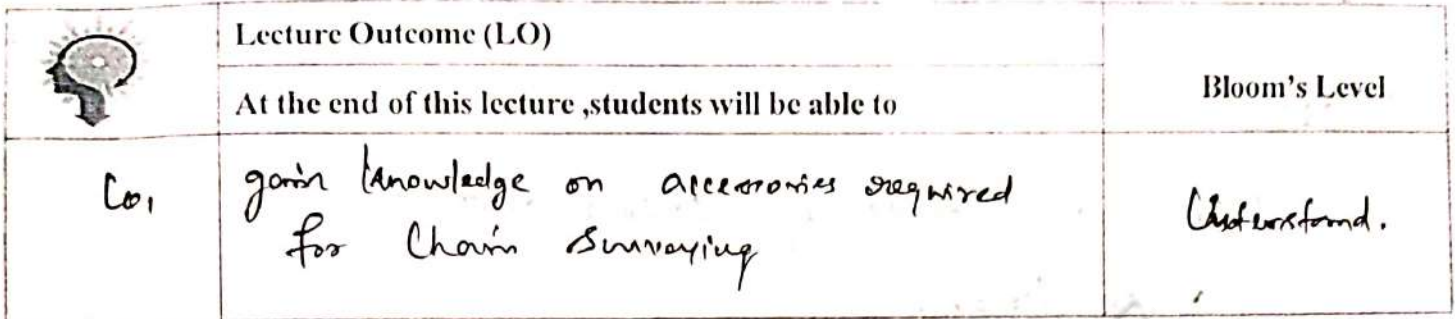 Lecture Outcome (LO)
At the end of this lecture ,students will be able to
Bloom's Level
Co1
gain knowledge on accessories required
for Chain Surveying
Understand.